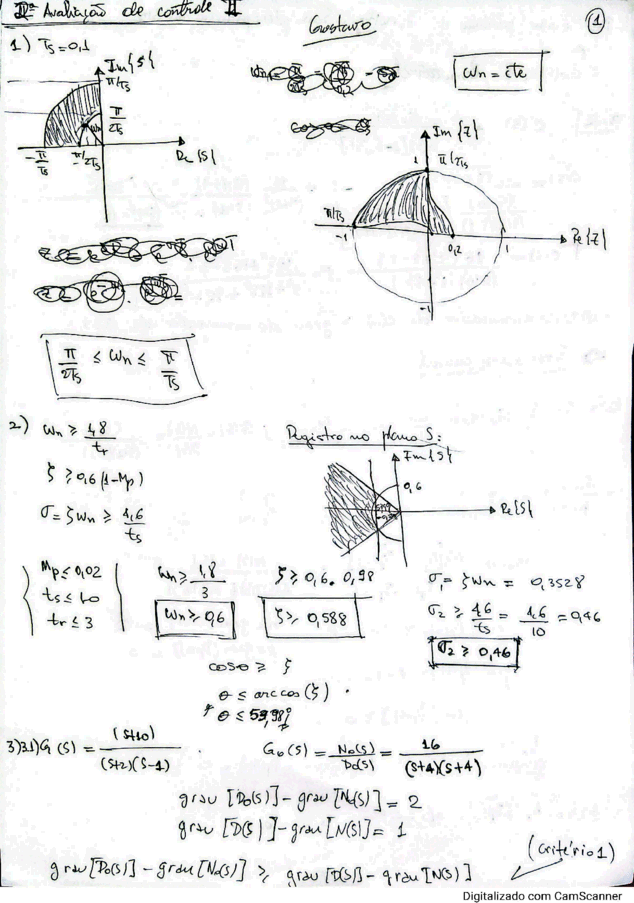 IIª Avaliação de controle II
Gustavo
1
1) Ts=0,1
Im{S}
π/Ts
π/2Ts
Wn
-π/Ts
-π/2Ts
Re{S}
Wn = cte
Im{Z}
1
π/2Ts
π/Ts
-1
0,2
1
Re{Z}
-1
π/2Ts ≤ Wn ≤ π/Ts
2) Wn ≥ 1,8/tr
ξ ≥ 0,6(1-Mp)
σ = ξWn ≥ 4,6/ts
Registro no plano S:
Im{S}
0,6
Re{S}
Mp ≤ 0,02
ts ≤ 10
tr ≤ 3
Wn ≥ 1,8/3
Wn ≥ 0,6
ξ ≥ 0,6 . 0,98
ξ ≥ 0,588
σ1 = ξWn = 0,3528
σ2 ≥ 4,6/ts = 4,6/10 = 0,46
σ2 ≥ 0,46
cosθ ≥ ξ
θ ≤ arccos(ξ)
θ ≤ 53,98°
3) 3.1) G(S) = (S+10)/(S+2)(S-1)
Go(S) = No(S)/Do(S) = 16/(S+4)(S+4)
grau [Do(S)] - grau [No(S)] = 2
grau [D(S)] - grau [N(S)] = 1
grau [Do(S)] - grau [No(S)] ≥ grau [D(S)] - grau [N(S)]
(critério 1)
Digitalizado com CamScanner